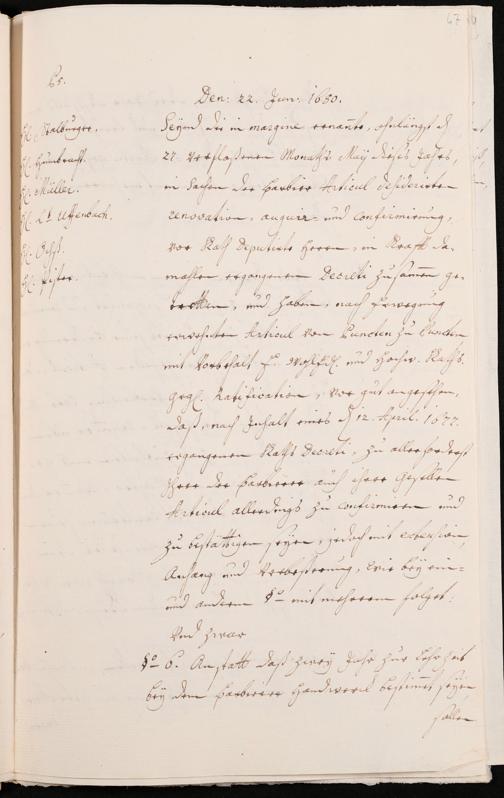 67
65.
Den: 22. Jun: 1680.
H. Kalburger.
H. Humbracht.
H. Müller.
H. Lt. Uffenbach.
H. Ochß.
H. Pistor.
Seynd die in margine ernante, ohnlängst d.
21 verfloßenen Monaths May dießes Jahrs,
in sachen der Barbirer Articul desiderirten
renovation, augir- und confirmirung,
vor Rath Deputirte Herren, in Krafft da-
mahlen ergangenen Decreti zusammen ge-
tretten, und haben, nach Erwegung
erwehnten Articul von Puncten zu Puncten
mit Vorbehalt E. WohlEdl. und Hochw. Raths
Ggl. Ratification, vor gut angesehen,
daß, nach Inhalt eines d. 12. April. 1677.
ergangenen Raths Decreti, zu allerforderst
Ihre der Barbierer auch ihrer Gesellen
Articul allerdings zu confirmiren und
zu bestättigen seyen, jedoch mit extension,
Anhang und Verbesserung, wie bey ein-
und andern §o mit mehrerm folget:
Und zwar
§o 6. Anstatt daß zwey Jahr zur Lehrzeit
bey dem Barbirer Handwerck bestimmt seyen
sollen